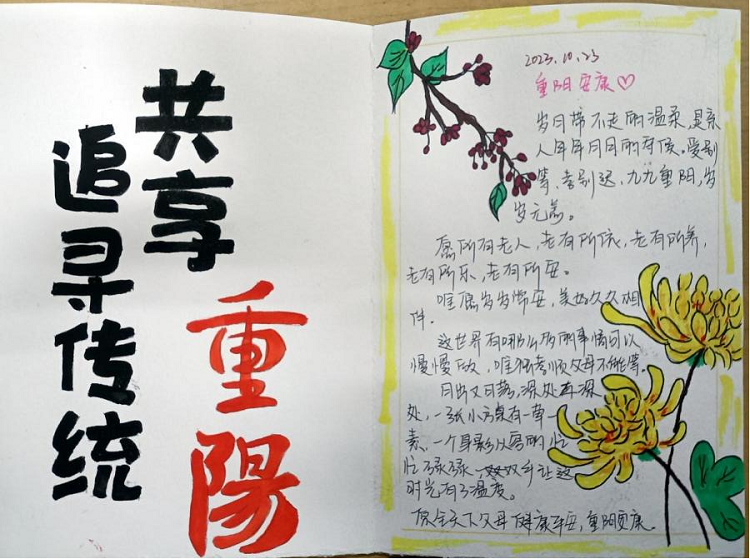 共享
重陽
追寻传统
2023.10.23
重阳安康♡
岁月带不走的温柔,是亲
人年年月月的等候。爱别
等、孝别迟、九九重阳,岁
岁无恙。
愿所有老人,老有所依,老有所养,
老有所乐,老有所安。
唯愿岁岁常安,美好久久相
伴。
这世界有那么多的事情可以
慢慢做,唯独孝顺父母不能等,
月出又日落,深处再深
处,一张小方桌有一荤一
素、一个身影从容的忙
忙碌碌、一双手让这
时光有了温度。
全天下父母健康平安,重阳安康。